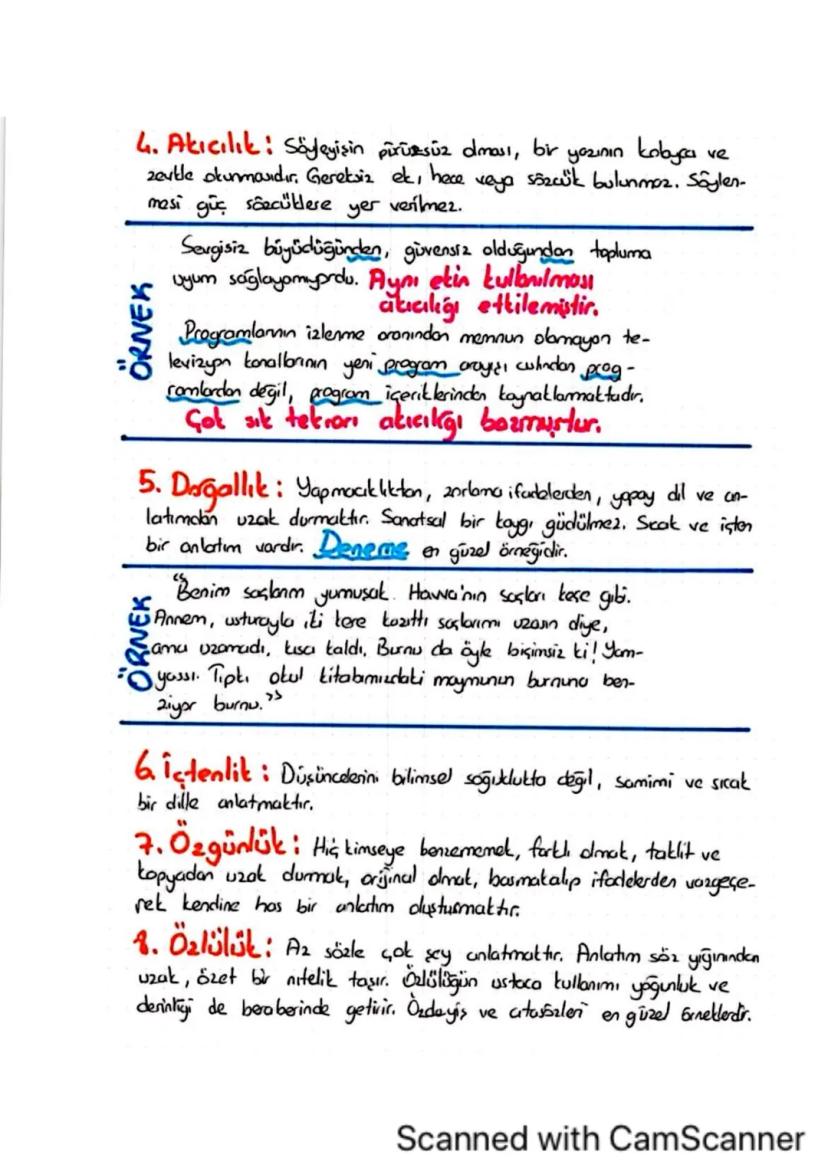 4. Akıcılık: Söyleyişin pürüzsüz olması, bir yazının kolayca ve
zevkle okunmasıdır. Gereksiz ek, hece veya sözcük bulunmaz. Söylen-
mesi güç sözcüklere yer verilmez.
ÖRNEK
Sevgisiz büyüdüğünden, güvensiz olduğundan topluma
uyum sağlayamıyordu. Aynı ekin kullanılması
akıcılığı etkilemiştir.
Programlarının izlenme oranından memnun olamayan te-
levizyon kanallarının yeni program arayışı aslından prog-
ramlardan değil, program içeriklerinden kaynaklanmaktadır.
Çok sık tekrarı akıcılığı bozmuştur.
5. Doğallık: Yapmacıklıktan, zorlama ifadelerden, yapay dil ve an-
latımdan uzak durmaktır. Sanatsal bir kaygı güdülmez. Sıcak ve içten
bir anlatım vardır. Deneme en güzel örneğidir.
ÖRNEK
"Benim saçlarım yumuşak. Havva'nın saçları keçe gibi.
Annem, usturayla iki kere kazıttı saçlarımı uzasın diye,
ama uzamadı, kısa kaldı. Burnu da öyle biçimsiz ki! Yam-
yassı. Tıpkı okul kitabımızdaki maymunun burnuna ben-
ziyor burnu."
6. İçtenlik: Düşüncelerini bilimsel soğuklukta değil, samimi ve sıcak
bir dille anlatmaktır.
7. Özgünlük: Hiç kimseye benzememek, farklı olmak, taklit ve
kopyadan uzak durmak, orijinal olmak, basmakalıp ifadelerden vazgeçe-
rek kendine has bir anlatım oluşturmaktır.
8. Özlülük: Az sözle çok şey anlatmaktır. Anlatım söz yığınından
uzak, özet bir nitelik taşır. Özlülüğün ustaca kullanımı yoğunluk ve
derinliği de beraberinde getirir. Özdeyiş ve atasözleri en güzel örneklerdir.
Scanned with CamScanner